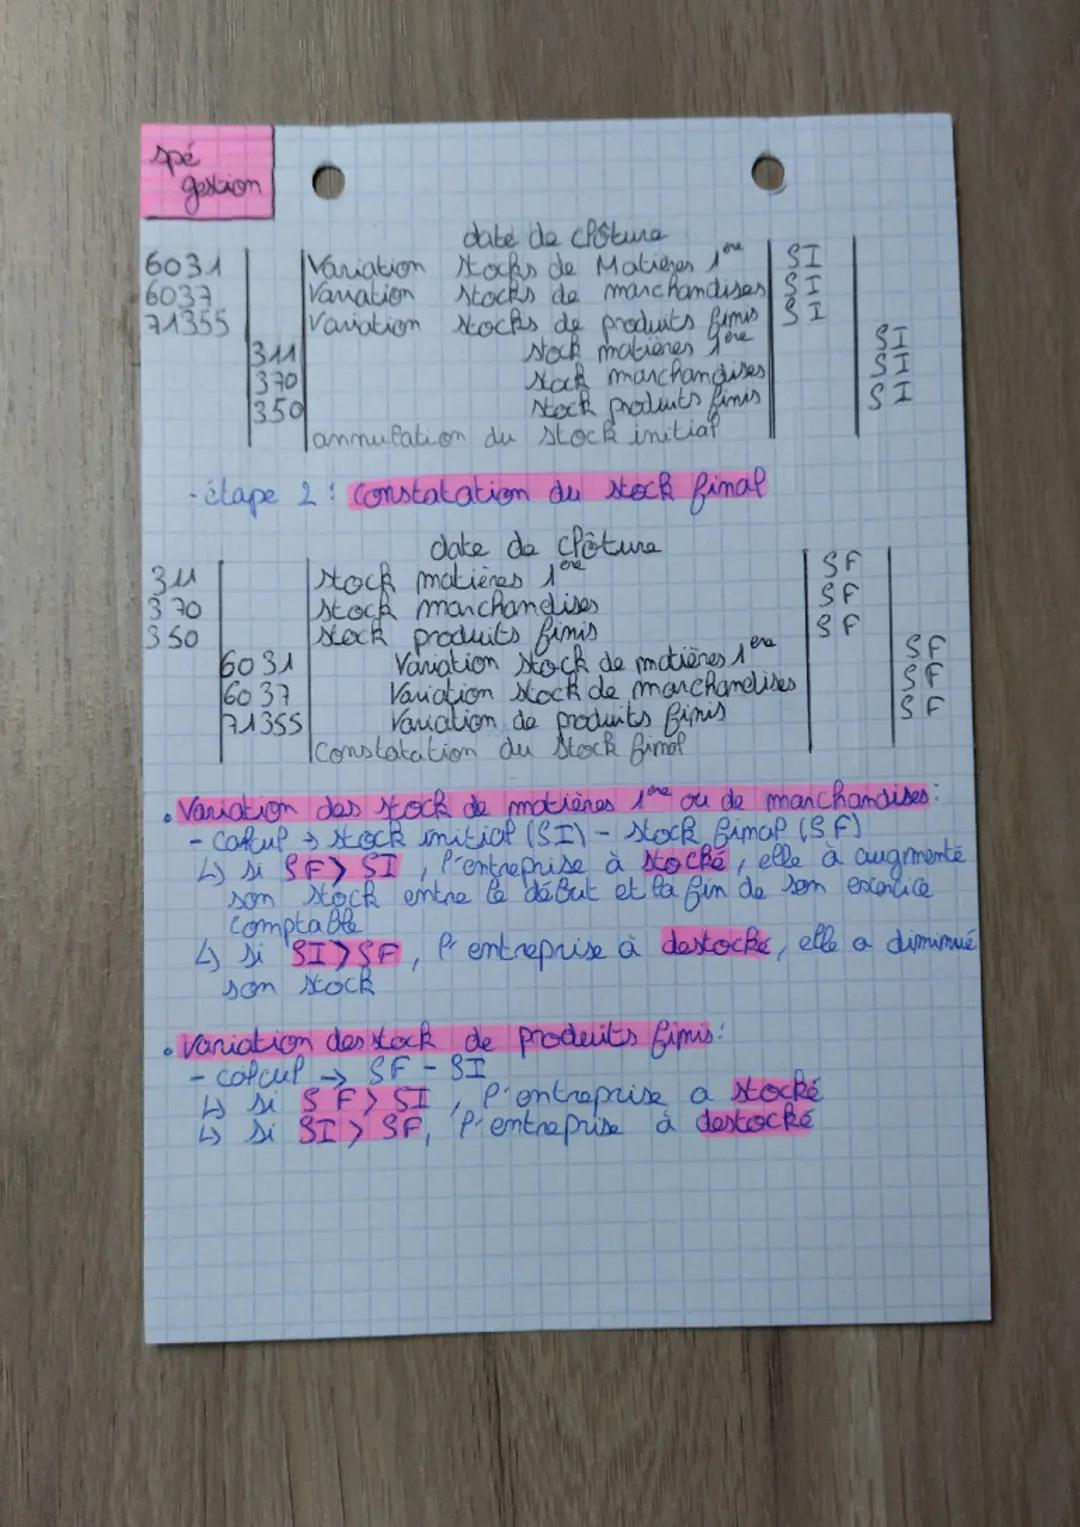 spé
gestion
date de clôture
6031 Variation stocks de Matières 1ère SI
6037 Variation stocks de marchandises SI
71355 Variation stocks de produits finis SI
311 stock matières 1ère SI
370 stock marchandises SI
350 stock produits finis SI
annulation du stock initial
- étape 2 : constatation du stock final
date de clôture
311 stock matières 1ère SF
370 stock marchandises SF
350 stock produits finis SF
6031 Variation stock de matières 1ère SF
6037 Variation stock de marchandises SF
71355 Variation de produits finis SF
constatation du stock final
• Variation des stock de matières 1ère ou de marchandises :
- calcul → stock initial (SI) - stock final (SF)
↳ si SF > SI, l'entreprise à stocké, elle à augmenté
son stock entre le début et la fin de son exercice
comptable
↳ si SI > SF, l'entreprise à destocké, elle a diminué
son stock
• Variation des stock de produits finis :
- calcul → SF - SI
↳ si SF > SI, l'entreprise a stocké
↳ si SI > SF, l'entreprise à destocké